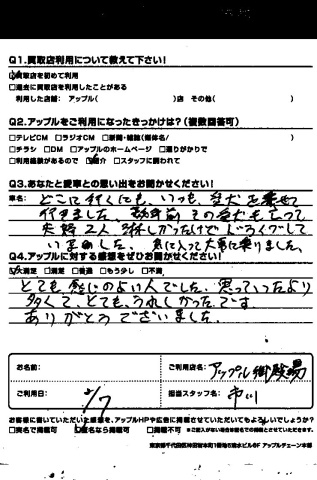 Q1.買取店利用について教えて下さい!
買取店を初めて利用
□過去に買取店を利用したことがある
利用した店舗: アップル( )店 その他( )
Q2.アップルをご利用になったきっかけは?(複数回答可)
□テレビCM □ラジオCM □新聞・雑誌(媒体名/ )
□チラシ □DM □アップルのホームページ □通りがかりで
□利用経験があるので 紹介 □スタッフに誘われて
Q3.あなたと愛車との思い出をお聞かせください!
車名: どこに行くにも、いつも、愛犬を乗せて
行きました。 その愛犬も亡って
夫婦2人、
いました。 気に入って大事に乗りました。
Q4.アップルに対する感想をぜひお聞かせください!
大満足 □満足 □普通 □もう少し □不満
とても感じのよい人でした。思っていたより
多くて、とても、うれしかったです
ありがとうございました。
お名前:
ご利用店名: アップル御殿場
ご利用日: 5/7
担当スタッフ名: 市川
お客様に書いていただいた感想を、アップルHPや広告に掲載させていただいてもよろしいでしょうか?
□実名で掲載可 匿名なら掲載可 □掲載不可 ※ご記入がない場合は匿名での掲載とさせていただきます。